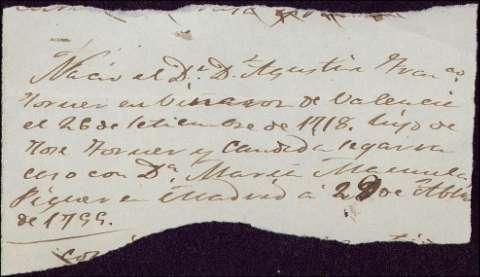 Nacio el Dr. Dn. Agustin Franco.
Forner en Vinaroz de Valencia
el 26 de Setiembre de 1718. hijo de
Jose Forner y Candida Segarra
caso con Da. Maria Manuela
Piquer en Madrid á 29 de Abril
de 1799.